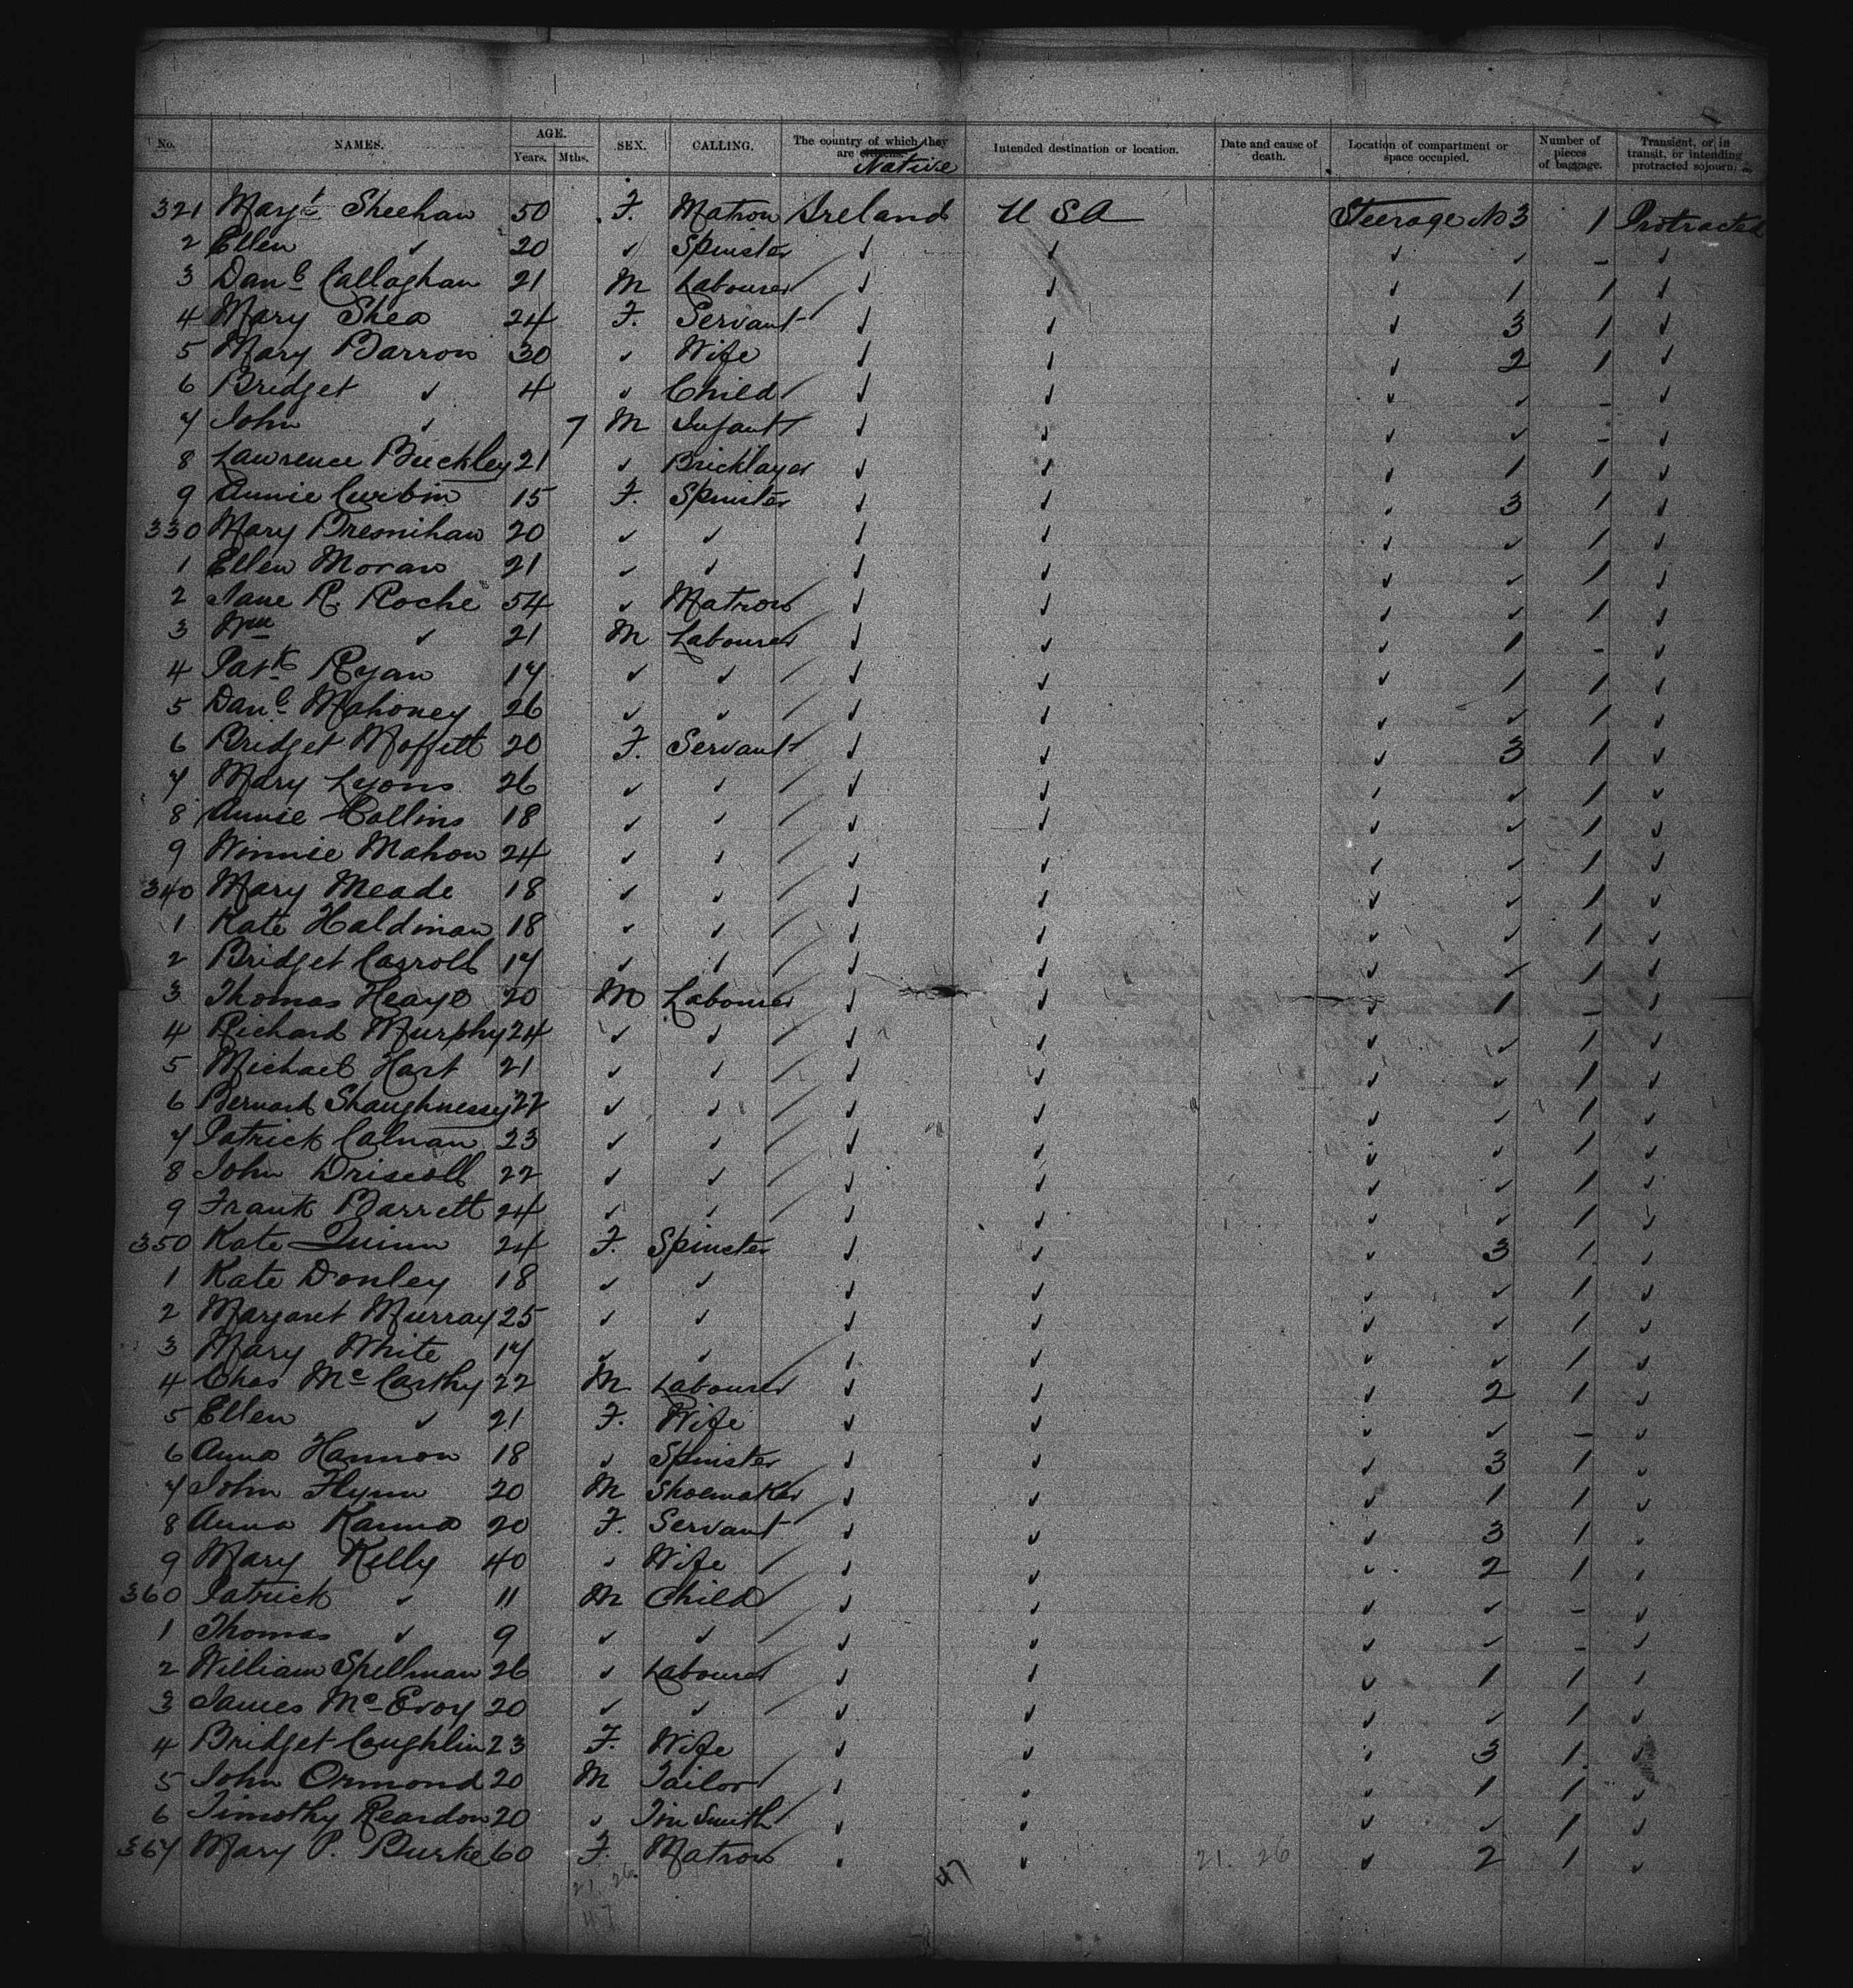 No. NAMES. AGE. SEX. CALLING. The country of which they are citizens. Native Intended destination or location. Date and cause of death. Location of compartment or space occupied. Number of pieces of baggage. Transient, or in transit, or intending protracted sojourn.
Years. Mths.
321 Margt Sheehan 50 F. Matron Ireland U S A Steerage No 3 1 Protracted
2 Ellen ✓ 20 ✓ Spinster ✓ ✓ ✓ ✓ - ✓
3 Danl Callaghan 21 M Labourer ✓ ✓ ✓ 1 1 ✓
4 Mary Shea 24 F. Servant ✓ ✓ ✓ 3 1 ✓
5 Mary Barron 30 ✓ Wife ✓ ✓ ✓ 2 1 ✓
6 Bridget ✓ 4 ✓ Child ✓ ✓ ✓ ✓ - ✓
7 John ✓ 7 M Infant ✓ ✓ ✓ ✓ - ✓
8 Lawrence Buckley 21 ✓ Bricklayer ✓ ✓ ✓ 1 1 ✓
9 Annie Curbin 15 F. Spinster ✓ ✓ ✓ 3 1 ✓
330 Mary Bresnihan 20 ✓ ✓ ✓ ✓ ✓ ✓ 1 ✓
1 Ellen Moran 21 ✓ ✓ ✓ ✓ ✓ ✓ 1 ✓
2 Jane R. Roche 54 ✓ Matron ✓ ✓ ✓ ✓ 1 ✓
3 Wm ✓ 21 M Labourer ✓ ✓ ✓ 1 - ✓
4 Patk Ryan 17 ✓ ✓ ✓ ✓ ✓ 1 1 ✓
5 Danl Mahoney 26 ✓ ✓ ✓ ✓ ✓ ✓ 1 ✓
6 Bridget Moffett 20 F. Servant ✓ ✓ ✓ 3 1 ✓
7 Mary Lyons 26 ✓ ✓ ✓ ✓ ✓ ✓ 1 ✓
8 Annie Collins 18 ✓ ✓ ✓ ✓ ✓ ✓ 1 ✓
9 Winnie Mahon 24 ✓ ✓ ✓ ✓ ✓ ✓ 1 ✓
340 Mary Meade 18 ✓ ✓ ✓ ✓ ✓ ✓ 1 ✓
1 Kate Haldinan 18 ✓ ✓ ✓ ✓ ✓ ✓ 1 ✓
2 Bridget Carroll 17 ✓ ✓ ✓ ✓ ✓ ✓ 1 ✓
3 Thomas Heaye 20 M Labourer ✓ ✓ ✓ 1 - ✓
4 Richard Murphy 24 ✓ ✓ ✓ ✓ ✓ ✓ 1 ✓
5 Michael Hart 21 ✓ ✓ ✓ ✓ ✓ ✓ 1 ✓
6 Bernard Shaughnessy 22 ✓ ✓ ✓ ✓ ✓ ✓ 1 ✓
7 Patrick Calnan 23 ✓ ✓ ✓ ✓ ✓ ✓ 1 ✓
8 John Driscoll 22 ✓ ✓ ✓ ✓ ✓ ✓ 1 ✓
9 Frank Barrett 24 ✓ ✓ ✓ ✓ ✓ ✓ 1 ✓
350 Kate Quinn 24 F. Spinster ✓ ✓ ✓ 3 1 ✓
1 Kate Donley 18 ✓ ✓ ✓ ✓ ✓ ✓ 1 ✓
2 Margaret Murray 25 ✓ ✓ ✓ ✓ ✓ ✓ 1 ✓
3 Mary White 17 ✓ ✓ ✓ ✓ ✓ ✓ 1 ✓
4 Chas McCarthy 22 M Labourer ✓ ✓ ✓ 2 1 ✓
5 Ellen ✓ 21 F. Wife ✓ ✓ ✓ ✓ - ✓
6 Anna Hannon 18 ✓ Spinster ✓ ✓ ✓ 3 1 ✓
7 John Flynn 20 M Shoemaker ✓ ✓ ✓ 1 1 ✓
8 Anna Kanna 20 F. Servant ✓ ✓ ✓ 3 1 ✓
9 Mary Kelly 40 ✓ Wife ✓ ✓ ✓ 2 1 ✓
360 Patrick ✓ 11 M Child ✓ ✓ ✓ ✓ - ✓
1 Thomas ✓ 9 ✓ ✓ ✓ ✓ ✓ ✓ - ✓
2 William Spellman 26 ✓ Labourer ✓ ✓ ✓ 1 1 ✓
3 James McEvoy 20 ✓ ✓ ✓ ✓ ✓ ✓ 1 ✓
4 Bridget Coughlin 23 F. Wife ✓ ✓ ✓ 3 1 ✓
5 John Ormond 20 M Tailor ✓ ✓ ✓ 1 1 ✓
6 Timothy Reardon 20 ✓ Tin Smith ✓ ✓ ✓ ✓ 1 ✓
367 Mary P. Burke 60 F. Matron ✓ ✓ 21. 26 ✓ 2 1 ✓
21. 26. 47
47